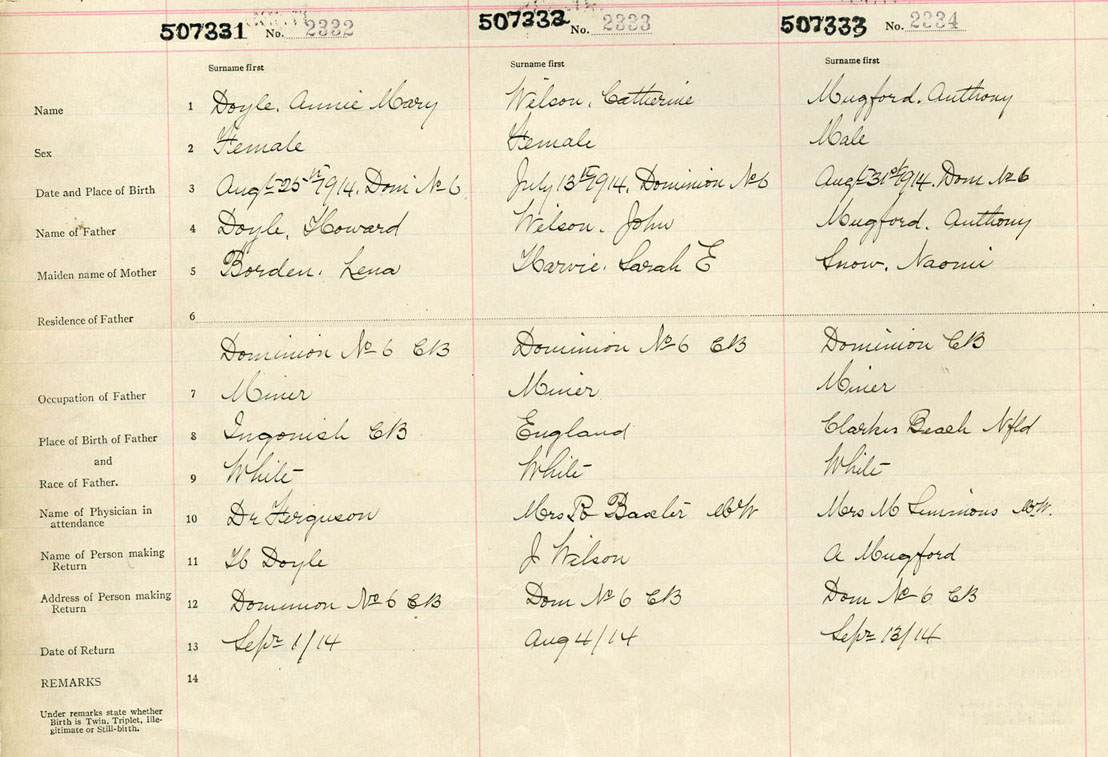 507331 No. 2332 507332 No. 2333 507333 No. 2334
Surname first Surname first Surname first
Name 1 Doyle, Annie Mary Wilson, Catherine Mugford, Anthony
Sex 2 Female Female Male
Date and Place of Birth 3 Augt 25th 1914, Dom No 6 July 13th 1914, Dominion No 6 Augt 31st 1914, Dom No 6
Name of Father 4 Doyle, Howard Wilson, John Mugford, Anthony
Maiden name of Mother 5 Borden, Lena Harvie, Sarah E Snow, Naomi
Residence of Father 6
Dominion No 6 CB Dominion No 6 CB Dominion CB
Occupation of Father 7 Miner Miner Miner
Place of Birth of Father 8 Ingonish CB England Clarkes Beach Nfld
and
Race of Father. 9 White White White
Name of Physician in
attendance 10 Dr Ferguson Mrs Baxter MW Mrs M Simmons MW.
Name of Person making
Return 11 H Doyle J Wilson A Mugford
Address of Person making
Return 12 Dominion No 6 CB Dom No 6 CB Dom No 6 CB
Date of Return 13 Sept 1/14 Aug 4/14 Sept 13/14
REMARKS 14
Under remarks state whether
Birth is Twin, Triplet, Ille-
gitimate or Still-birth.